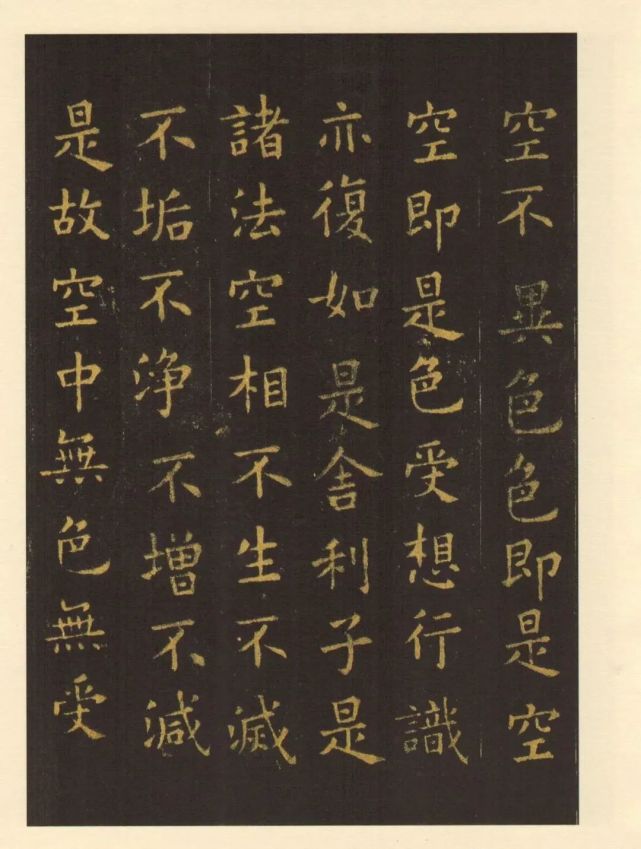 空不異色色即是空
空即是色受想行識
亦復如是舍利子是
諸法空相不生不滅
不垢不淨不增不減
是故空中無色無受